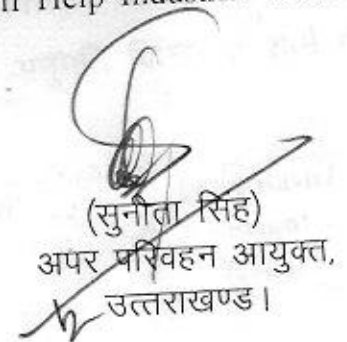 Help
(सुनीता सिंह)
अपर परिवहन आयुक्त,
उत्तराखण्ड।